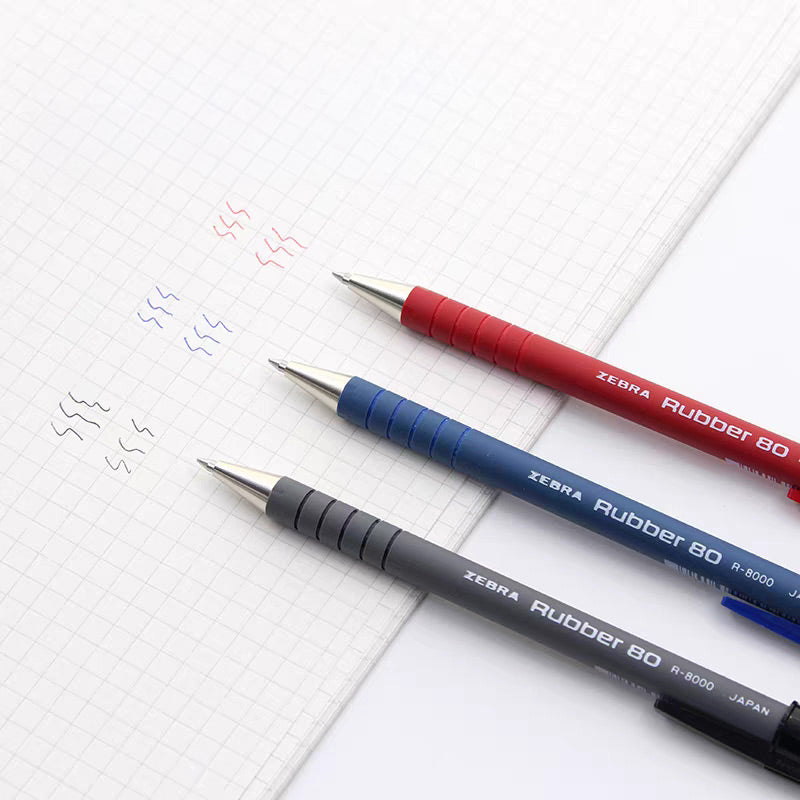 ZEBRA Rubber 80
ZEBRA Rubber 80 R-8000 JA
ZEBRA Rubber 80 R-8000 JAPAN